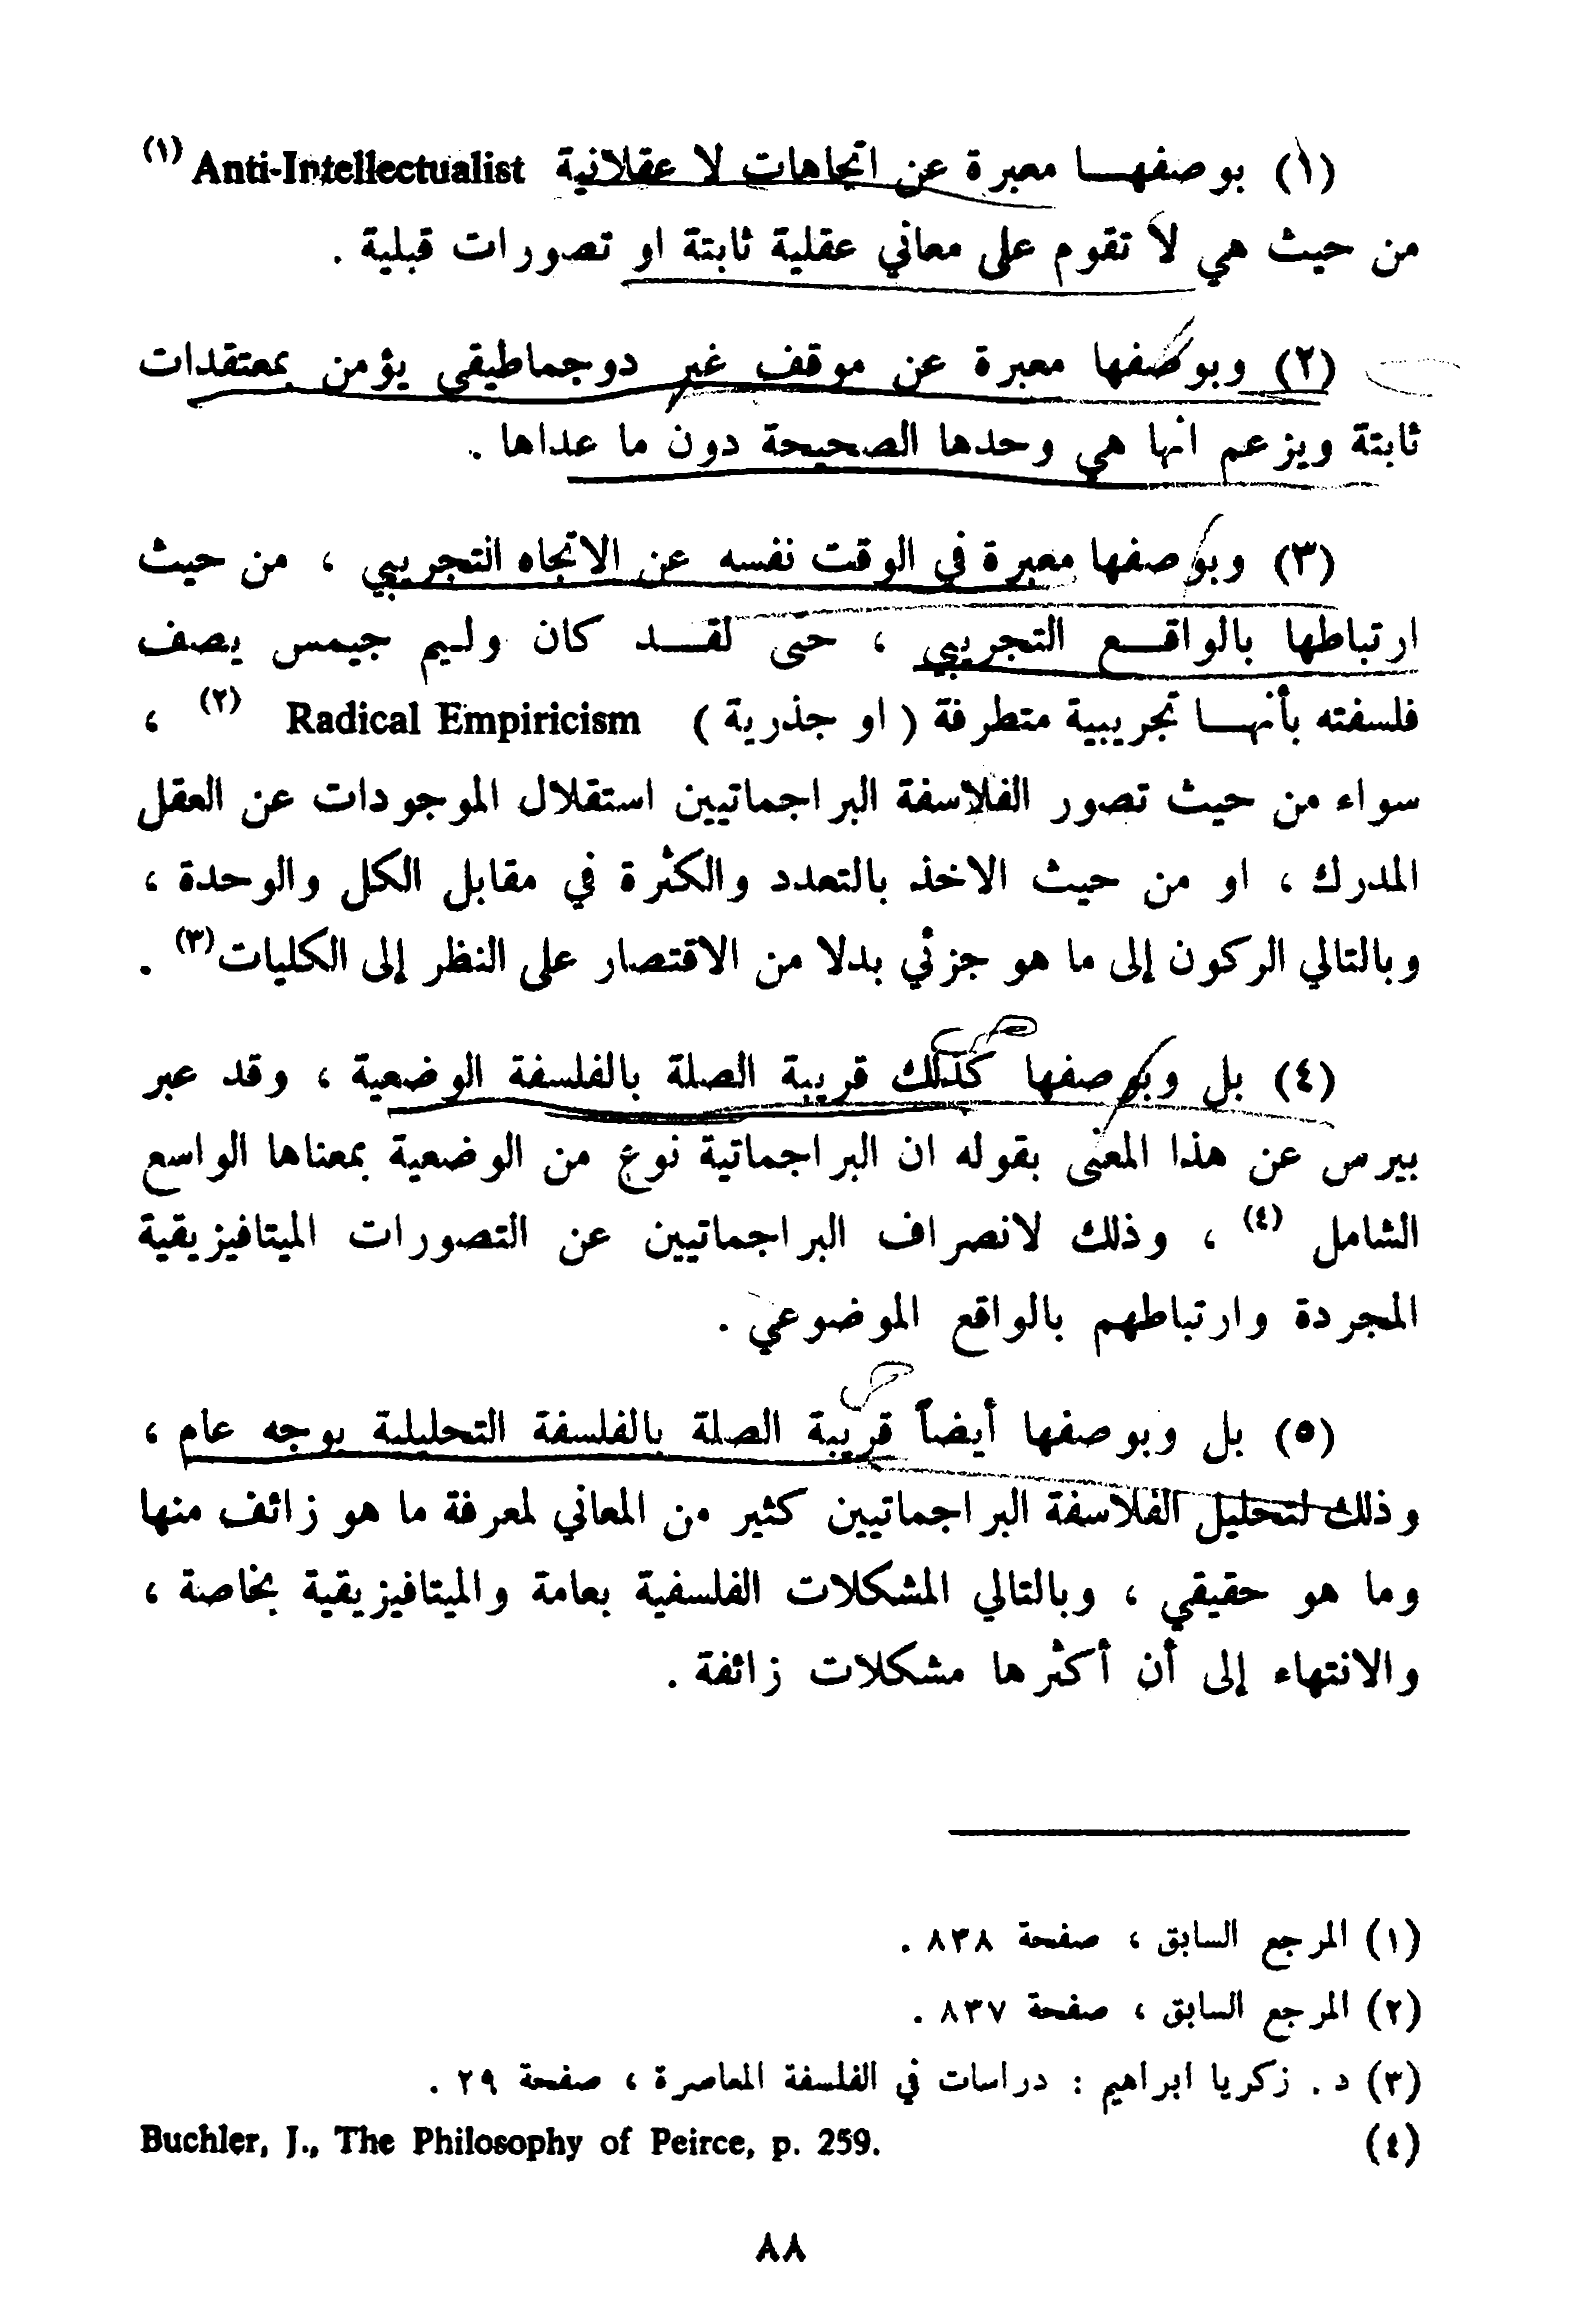 (١) بوصفهـا معبرة عن اتجاهات لا عقلانية Anti-Intellectualist (١)
من حيث هي لا تقوم على معاني عقلية ثابتة او تصورات قبلية .
(٢) وبوصفها معبرة عن موقف غير دوجماطيقي يؤمن بمعتقدات
ثابتة ويزعم انها هي وحدها الصحيحة دون ما عداها .
(٣) وبوصفها معبرة في الوقت نفسه عن الاتجاه التجريبي ، من حيث
ارتباطها بالواقـع التجريبي ، حتى لقـد كان وليم جيمس يصف
فلسفته بأنهـا تجريبية متطرفة ( او جذرية ) Radical Empiricism (٢) ،
سواء من حيث تصور الفلاسفة البراجماتيين استقلال الموجودات عن العقل
المدرك ، او من حيث الاخذ بالتعدد والكثرة في مقابل الكل والوحدة ،
وبالتالي الركون إلى ما هو جزئي بدلا من الاقتصار على النظر إلى الكليات (٣) .
(٤) بل وبوصفها كذلك قريبة الصلة بالفلسفة الوضعية ، وقد عبر
بيرس عن هذا المعنى بقوله ان البراجماتية نوع من الوضعية بمعناها الواسع
الشامل (٤) ، وذلك لانصراف البراجماتيين عن التصورات الميتافيزيقية
المجردة وارتباطهم بالواقع الموضوعي .
(٥) بل وبوصفها أيضاً قريبة الصلة بالفلسفة التحليلية بوجه عام ،
وذلك لتحليل الفلاسفة البراجماتيين كثير من المعاني لمعرفة ما هو زائف منها
وما هو حقيقي ، وبالتالي المشكلات الفلسفية بعامة والميتافيزيقية بخاصة ،
والانتهاء إلى أن أكثرها مشكلات زائفة .
(١) المرجع السابق ، صفحة ٨٣٨ .
(٢) المرجع السابق ، صفحة ٨٣٧ .
(٣) د . زكريا ابراهيم : دراسات في الفلسفة المعاصرة ، صفحة ٢٩ .
(٤) Buchler, J., The Philosophy of Peirce, p. 259.
٨٨